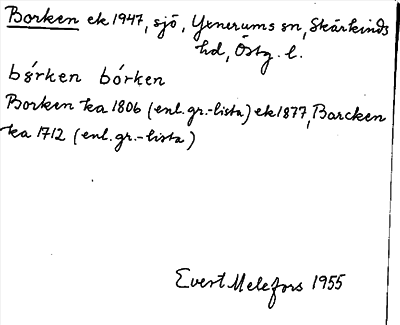 Borken ek 1947, sjö, Yxnerums sn, Skärkinds
hd, Östg. l.
bórken bórken
Borken ka 1806 (enl. gr.-lista) ek 1877, Barcken
ka 1712 (enl. gr.-lista)
Evert Melefors 1955